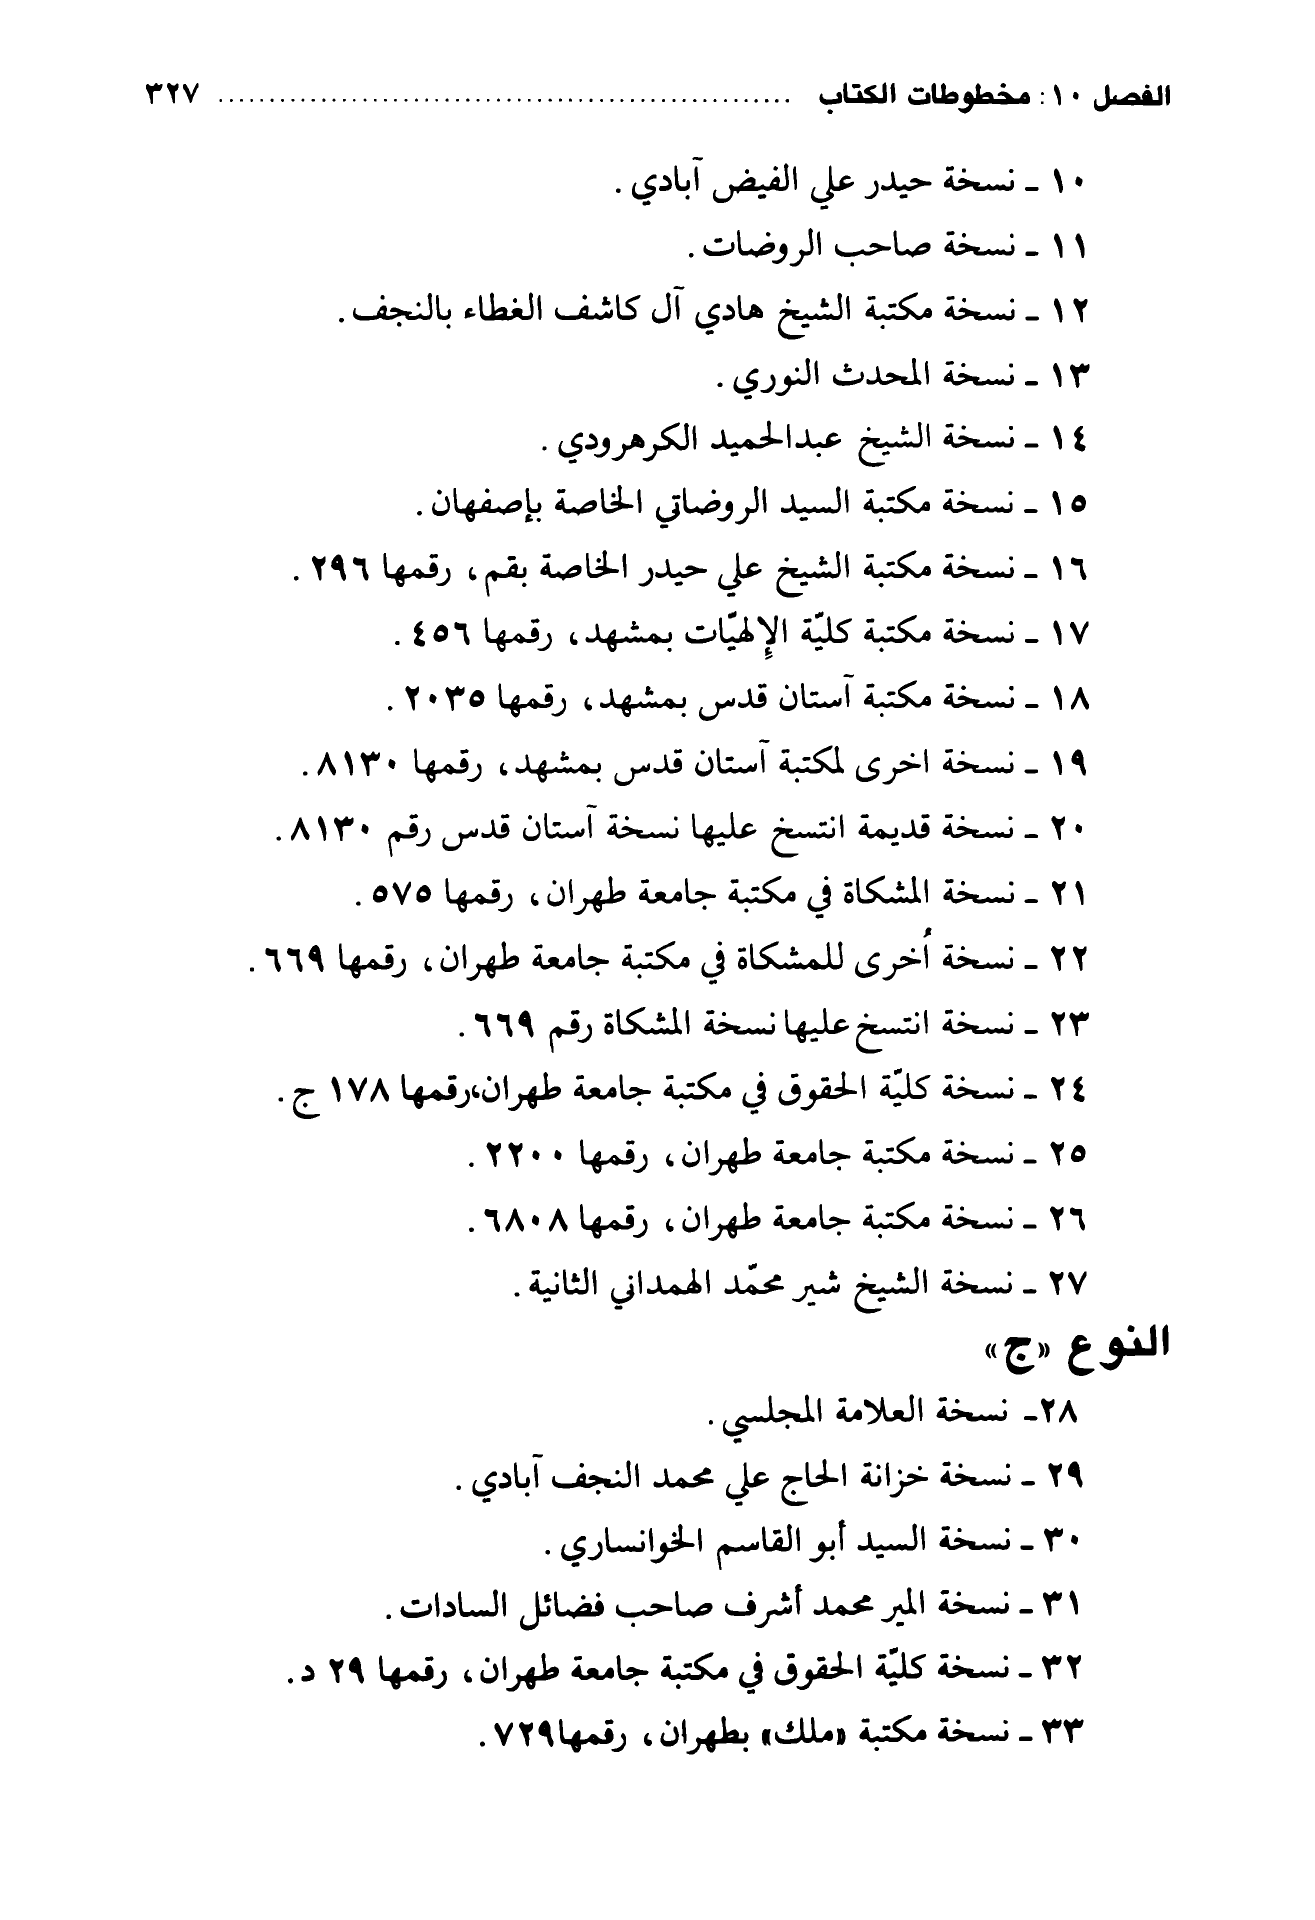 الفصل ١٠: مخطوطات الكتاب ........................................................ ٣٢٧
١٠ ـ نسخة حيدر علي الفيض آبادي .
١١ ـ نسخة صاحب الروضات .
١٢ ـ نسخة مكتبة الشيخ هادي آل كاشف الغطاء بالنجف .
١٣ ـ نسخة المحدث النوري .
١٤ ـ نسخة الشيخ عبدالحميد الكرهرودي .
١٥ ـ نسخة مكتبة السيد الروضاتي الخاصة بإصفهان .
١٦ ـ نسخة مكتبة الشيخ علي حيدر الخاصة بقم، رقمها ٢٩٦ .
١٧ ـ نسخة مكتبة كليّة الإِلهيّات بمشهد، رقمها ٤٥٦ .
١٨ ـ نسخة مكتبة آستان قدس بمشهد، رقمها ٢٠٣٥ .
١٩ ـ نسخة اخرى لمكتبة آستان قدس بمشهد، رقمها ٨١٣٠ .
٢٠ ـ نسخة قديمة انتسخ عليها نسخة آستان قدس رقم ٨١٣٠ .
٢١ ـ نسخة المشكاة في مكتبة جامعة طهران، رقمها ٥٧٥ .
٢٢ ـ نسخة أُخرى للمشكاة في مكتبة جامعة طهران، رقمها ٦٦٩ .
٢٣ ـ نسخة انتسخ عليها نسخة المشكاة رقم ٦٦٩ .
٢٤ ـ نسخة كليّة الحقوق في مكتبة جامعة طهران،رقمها ١٧٨ ج .
٢٥ ـ نسخة مكتبة جامعة طهران، رقمها ٢٢٠٠ .
٢٦ ـ نسخة مكتبة جامعة طهران، رقمها ٦٨٠٨ .
٢٧ ـ نسخة الشيخ شير محمّد الهمداني الثانية .
النوع «ج»
٢٨ـ نسخة العلامة المجلسي .
٢٩ ـ نسخة خزانة الحاج علي محمد النجف آبادي .
٣٠ ـ نسخة السيد أبو القاسم الخوانساري .
٣١ ـ نسخة المير محمد أشرف صاحب فضائل السادات .
٣٢ ـ نسخة كليّة الحقوق في مكتبة جامعة طهران، رقمها ٢٩ د .
٣٣ ـ نسخة مكتبة «ملك» بطهران، رقمها٧٢٩ .